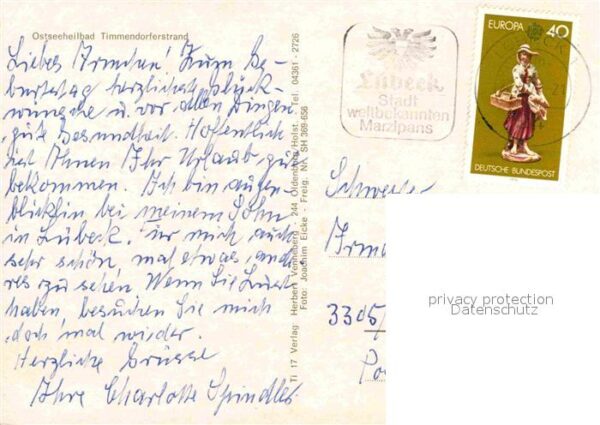 Ostseeheilbad Timmendorferstrand
Liebes Irmchen! Zum Ge-
burtstag herzlichst Glück-
wünsche u. vor allen Dingen
gute Gesundheit. Hoffentlich
ist Ihnen Ihr Urlaub gu
bekommen. Ich bin augen-
blicklich bei meinem Sohn
in Lübeck. Für mich auch
sehr schön, mal etwas and
res zu sehen. Wenn Sie Lust
haben, besuchen Sie mich
doch mal wieder.
Herzliche Grüsse
Ihre Charlotte Spindler
Ti 17 Verlag: Herbert Venneberg - 244 Oldenburg Holst. - Tel. 04361 - 2726
Foto: Joachim Eicke - Freig. Nr. SH 369-656
Lübeck
Stadt
weltbekannten
Marzipans
21
EUROPA 40
DEUTSCHE BUNDESPOST
Schwester
Irm
3305/
Po
privacy protection
Datenschutz